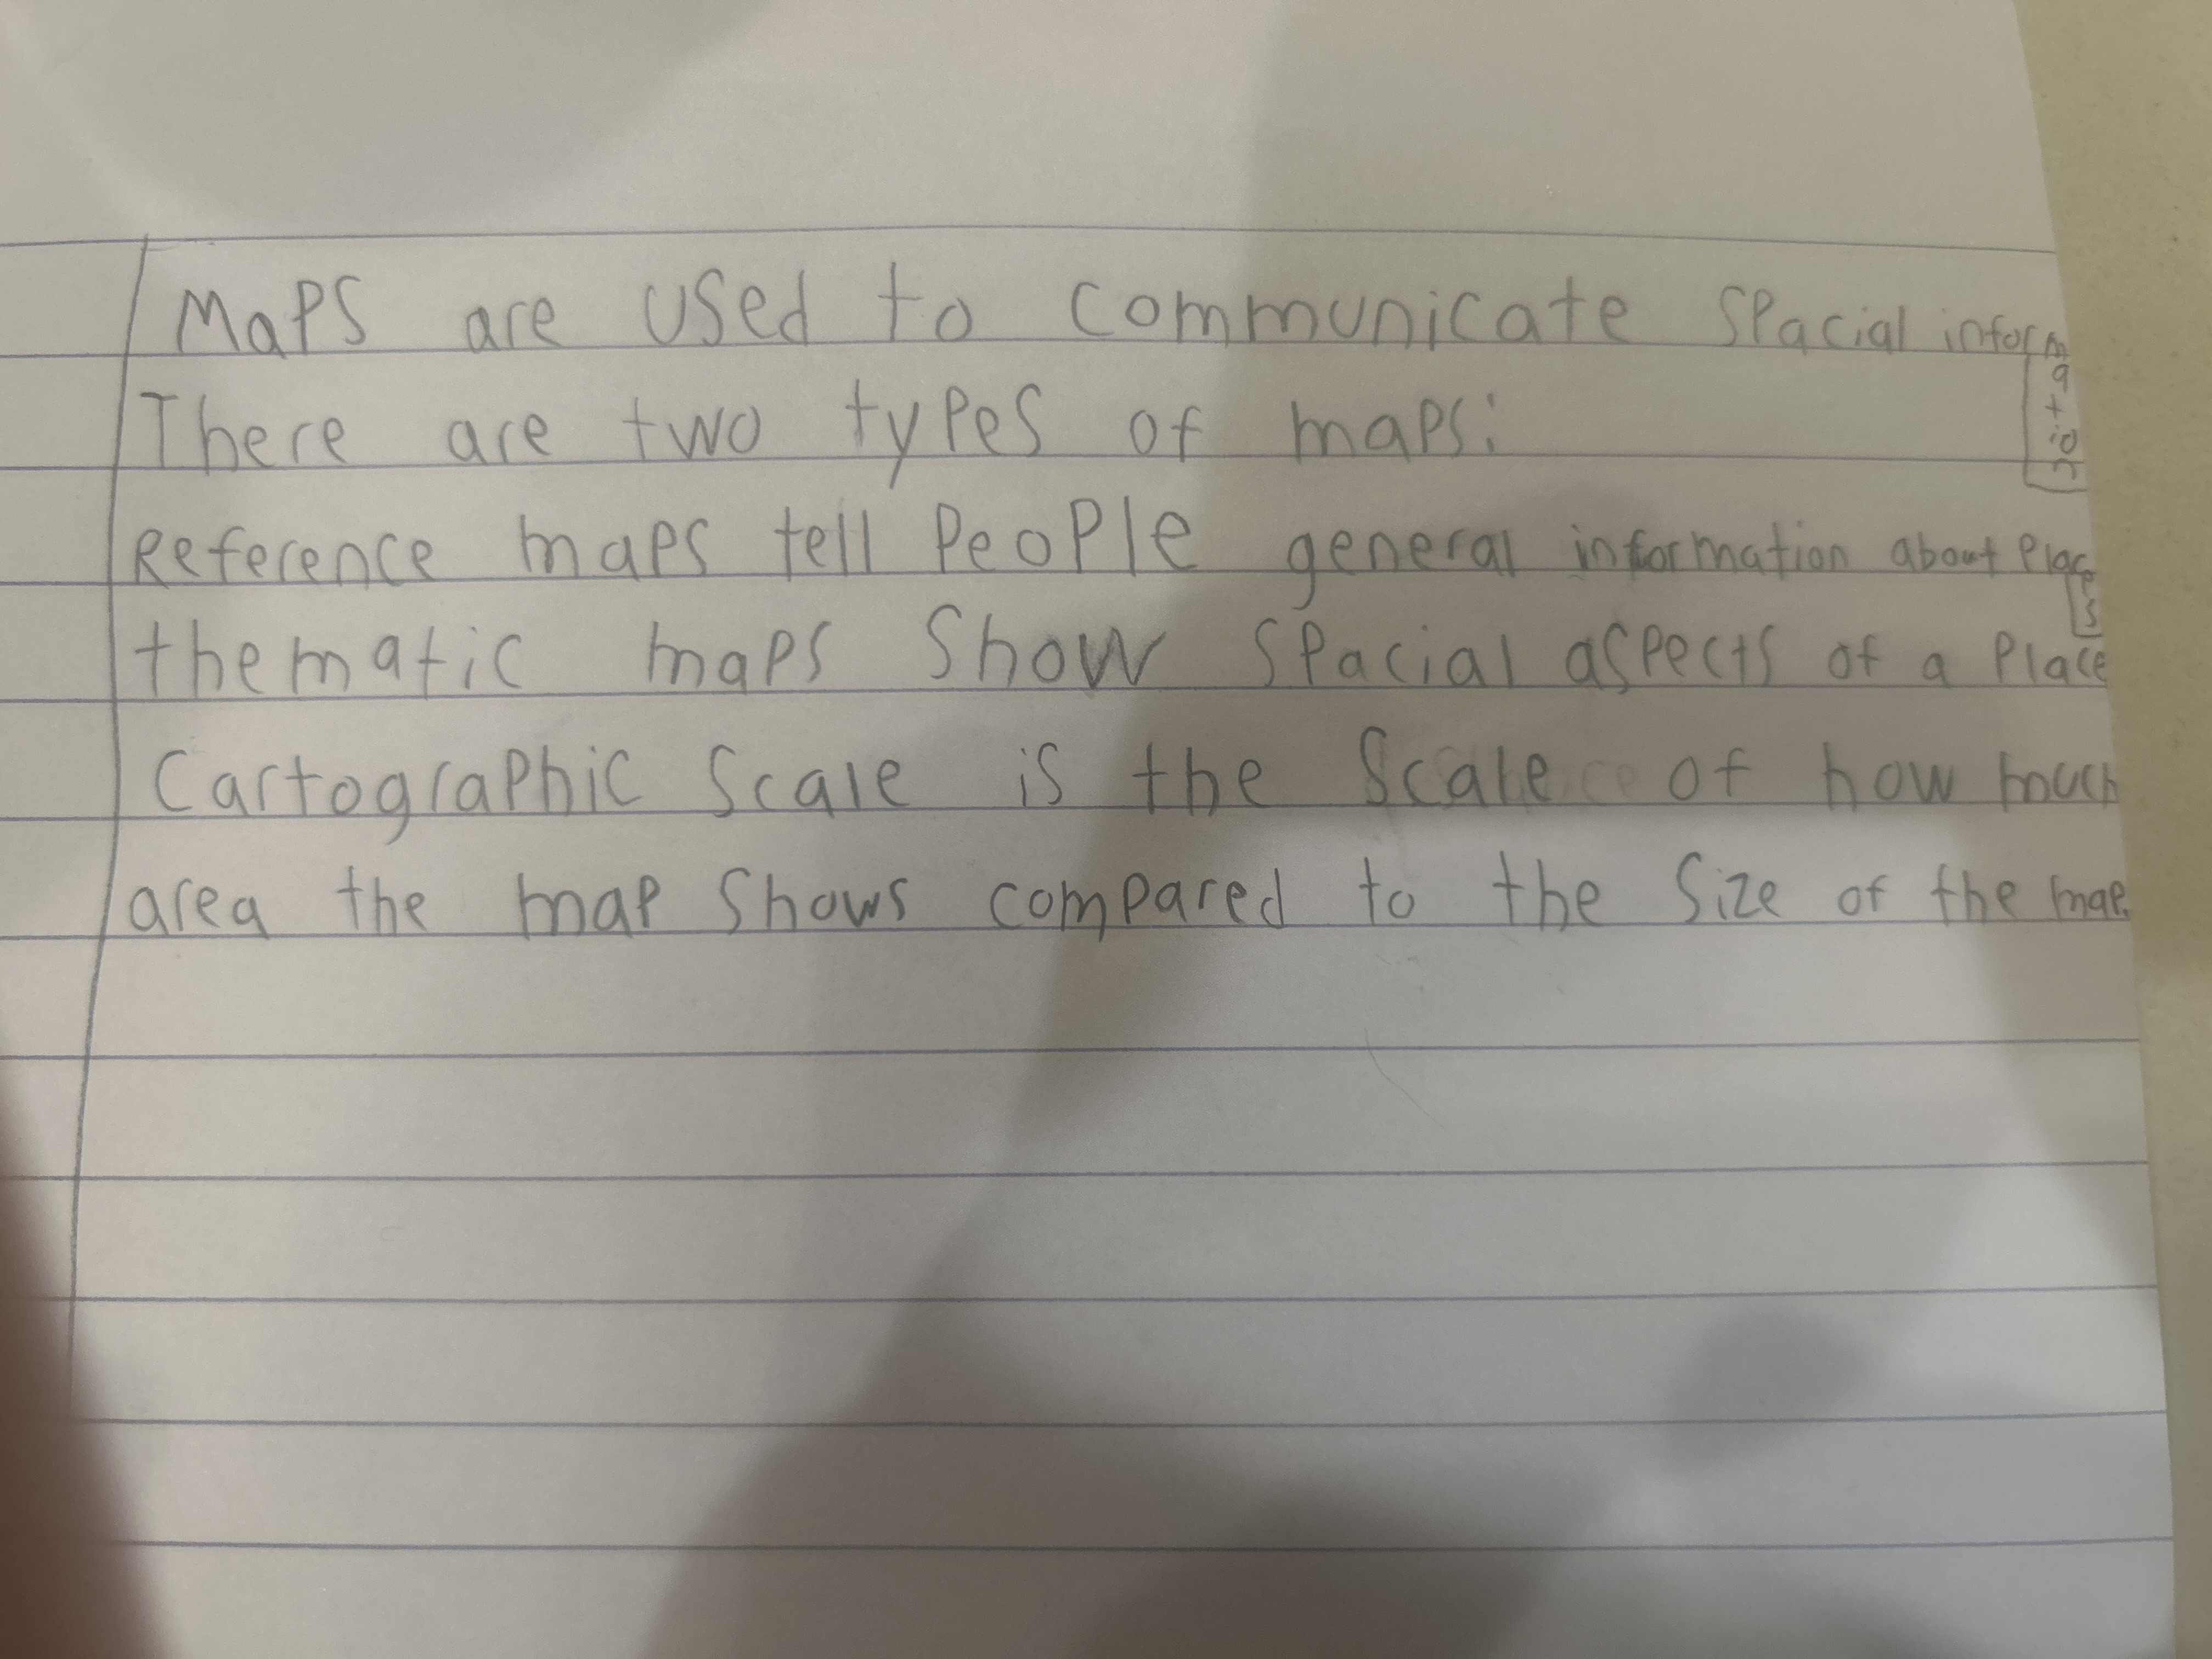 Maps are used to communicate spacial information
There are two types of maps:
Reference maps tell people general information about places
thematic maps show spacial aspects of a place
Cartographic scale is the scale of how much
area the map shows compared to the size of the map.